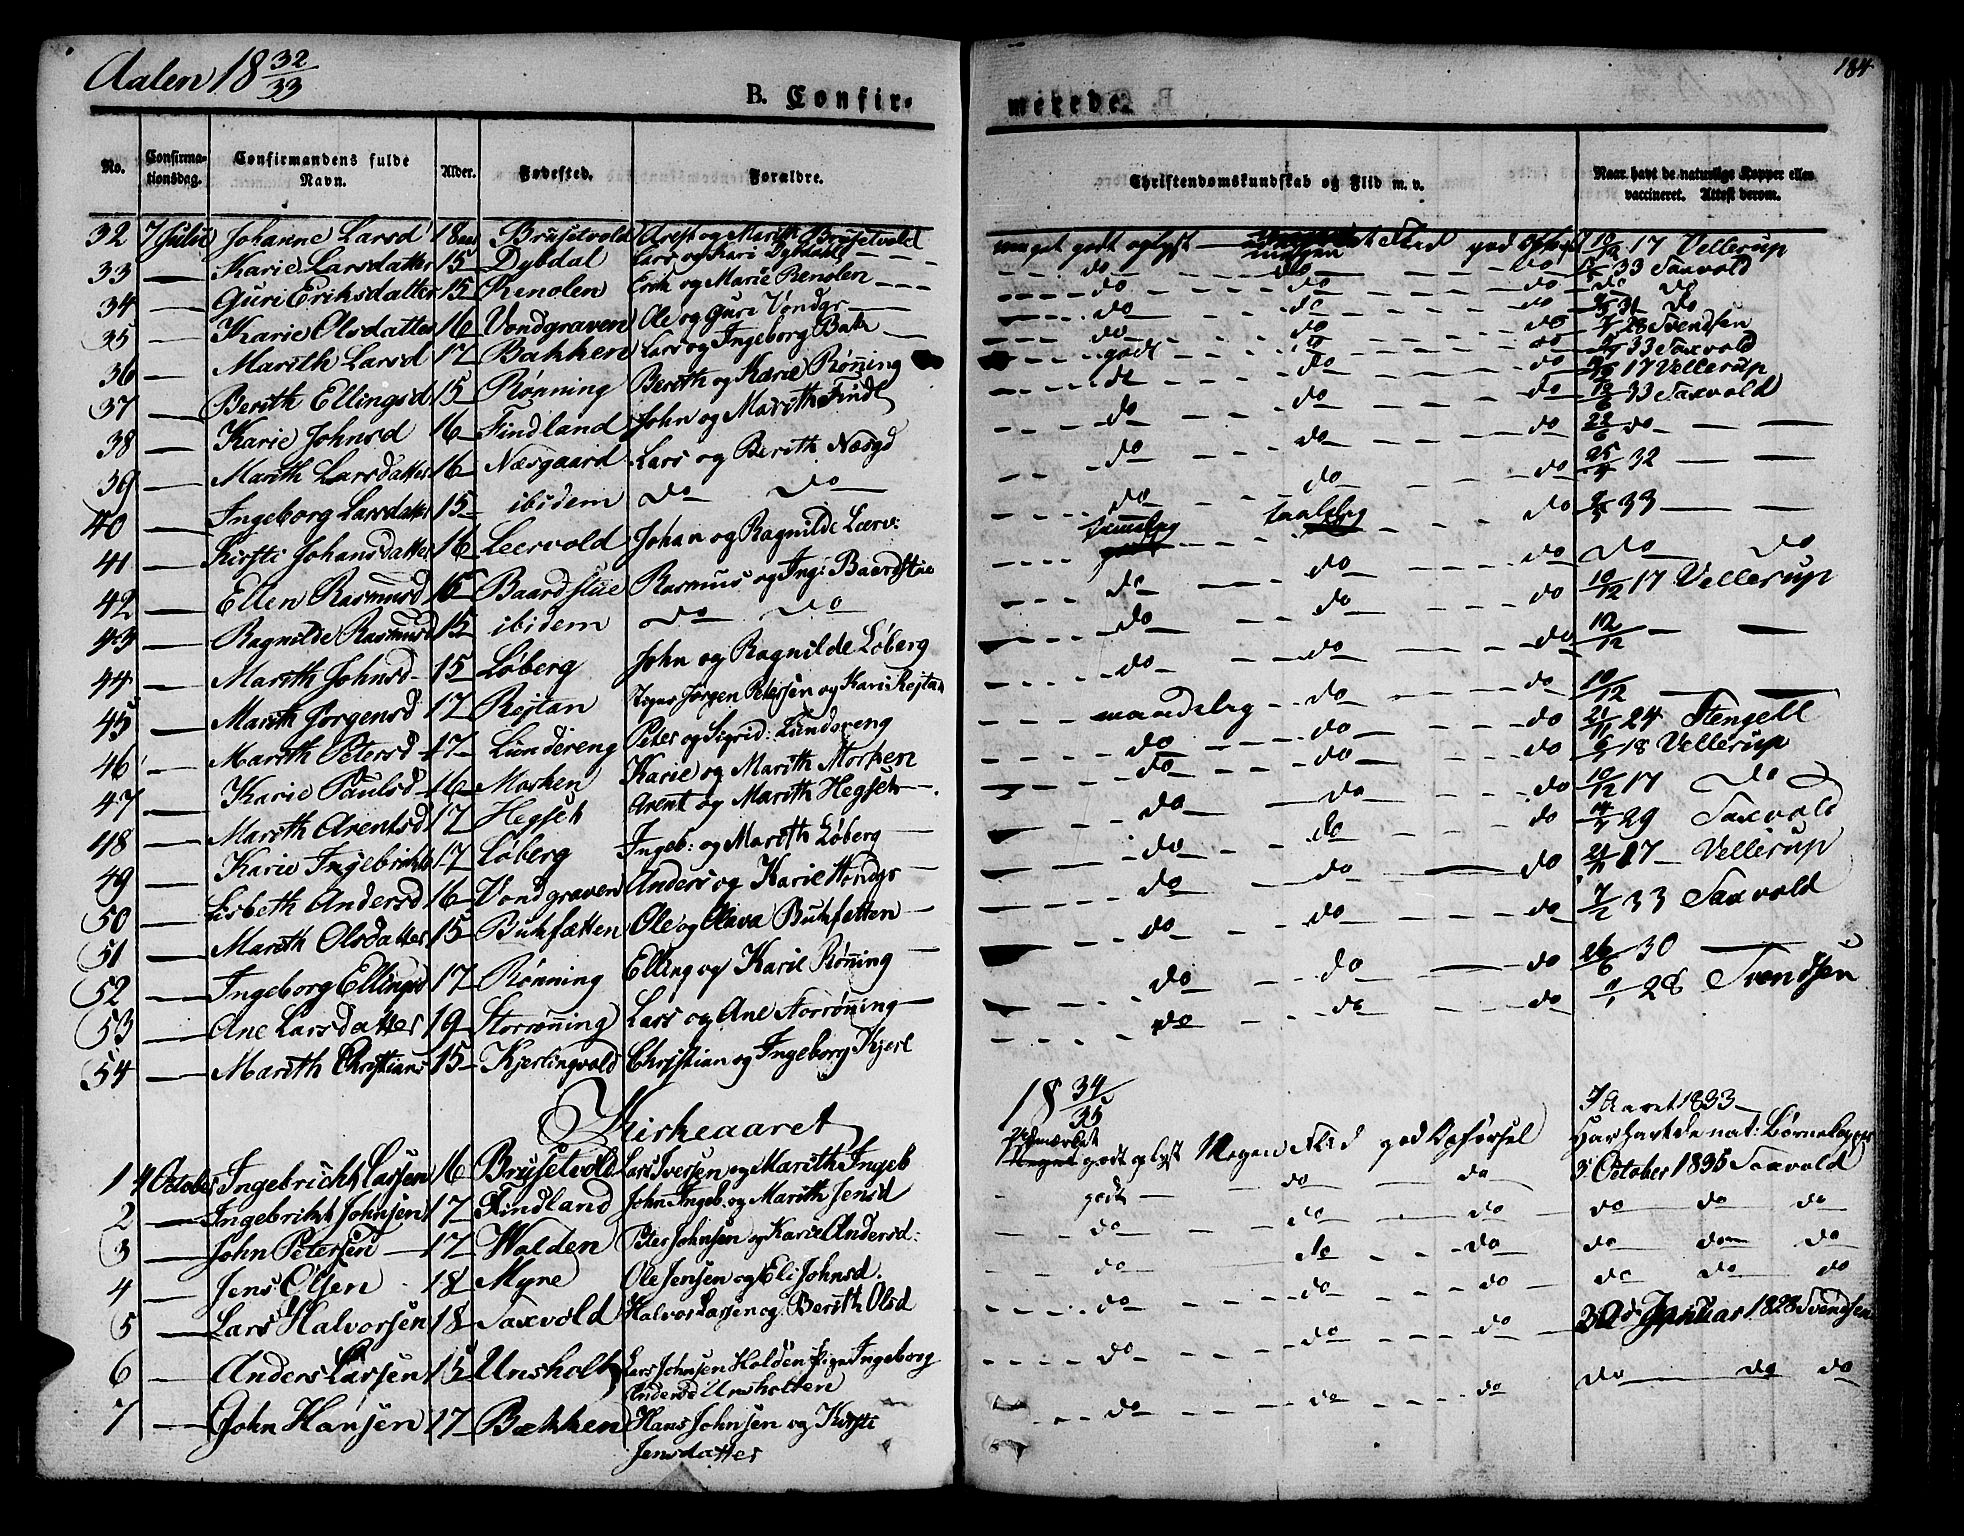 Aalen 18 32/33
184
B. Confir- merede.
No. Confirma-tionsdag. Confirmandens fulde Navn. Alder. Fødested. Forældre. Christendomskundskab og Flid m. v. Naar havt de naturlige Kopper eller vaccineret. Attest derom.
32 7 Julii Johanne Larsd 18 Brusetvold og Marith Brusetvold meget godt oplyst Flid god 17 Vellerup
33 — Karie Larsdatter 15 Dybdal Lars og Kari Dybdal do do do 33 Saxvold
34 — Guri Eriksdatter 15 Renolen Erik og Marie Renolen do do do do do
35 — Karie Olsdatter 16 Vondgraven Ole og Guri Vondgr do do do 31 do
36 — Marith Larsd 17 Bakken Lars og Ingeborg Bak do do do 28 Svendsen
37 — Berith Ellingsd 15 Rønning Berith og Karie Rønning godt do do 33 Saxvold
38 — Karie Johnsd 16 Findland John og Marith Findl do do do 17 Vellerup
39 — Marith Larsdatter 16 Næsgaard Lars og Berith Næsgd do do do 33 Saxvold
40 — Ingeborg Larsdatter 15 ibidem do do do do do 22/6 do
41 — Kirsti Johansdatter 16 Leervold Johan og Ragnilde Lærv: do do 25 32
42 — Ellen Rasmusd 16 Baardstue Rasmus og Ing: Baardstue taalelig do 33
43 — Ragnilde Rasmusd 15 ibidem do do do do do do do
44 — Marith Johnsd 15 Løberg John og Ragnilde Løberg do do do 10/12 17 Vellerup
45 — Marith Jørgensd 17 Rejtan Jørgen Petersen og Kari Rejtan do do do 10/12
46 — Marith Petersd 17 Lundereng Peter og Sigrid: Lundereng maadelig do do 10/12
47 — Karie Paulsd 16 Morken Karie og Marith Morken do do 21/11 24 Stengell
48 — Marith Arentsd 17 Hegset Arent og Marith Hegset do do do 18 Vellerup
49 — Karie Ingebrichtd 17 Løberg Ingeb: og Marith Løberg do do do 10/12 17 do
50 — Lisbeth Andersd 16 Vondgraven Anders og Karie Vondgr do do do 29 Saxvold
51 — Marith Olsdatter 15 Bukfætten Ole og Olava Bukfetten do do do 17 Vellerup
52 — Ingeborg Ellingsd 17 Rønning Elling og Karie Rønning do do do 7/2 33 Saxvold
53 — Ane Larsdatter 19 Storrøning Lars og Ane Storrøning do do do 26/6 30
54 — Marith Christians 15 Kjerlingvold Christian og Ingeborg Kjerl do do do 28 Svendsen
Kirkeaaret 18 34/35
1 4 October Ingebricht Larsen 16 Brusetvold Lars Iversen og Marith Ingeb godt oplyst Megen Flid god Opførsel I Aaret 1833 Har havt de nat: Børnekopper
2 — Ingebricht Johnsen 17 Findland John Ingeb. og Marith Jensd godt do do 3 October 1835 Saxvold
3 — John Petersen 17 Walden Peter Johnsen og Karie Andersd: do do do do do do
4 — Jens Olsen 18 Myre Ole Jensen og Eli Johnsd. do do do do do do
5 — Lars Halvorsen 18 Saxvold Halvor Larsen og Berith Olsd do do do do do do
6 — Anders Larsen 15 Unsholt Lars Johnsen Holden Pige Ingeborg Andersd Unsholten do do do Januar 1828 Svendsen
7 — John Hansen 17 Bækken Hans Johnsen og Kirsti Jensdatter do do do do do do